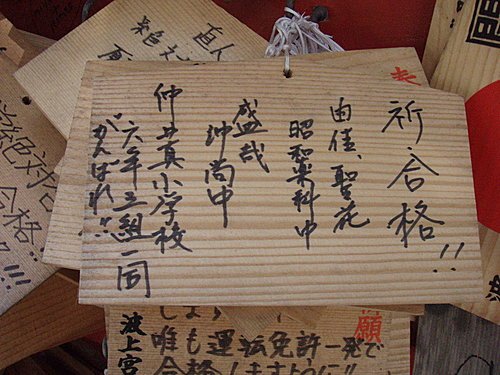 祈合格!!
由佳、聖花
昭和薬科中
盛哉
沖尚中
仲井真小学校
六年三組一同
"がんばれ!!"
直人
絶対
絶対合格!!
願
波上宮
唯も運転免許一発で
合格しますように!!